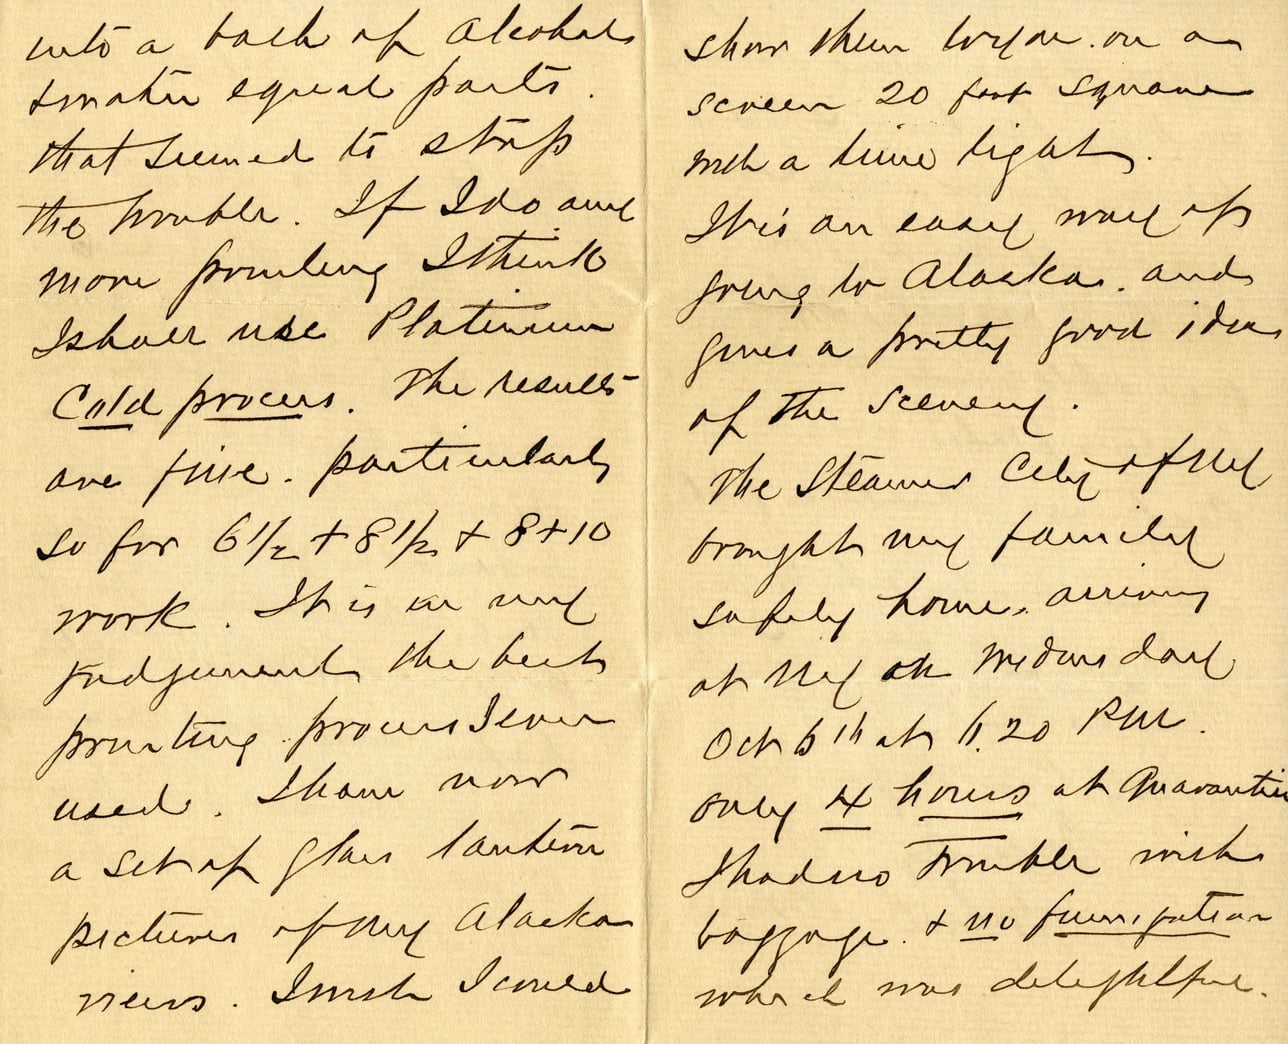 into a bath of Alcohol
& water equal parts.
that seemed to stop
the trouble. If I do any
more printing I think
I shall use Platinum
Cold process. The results
are fine. particularly
so for 6 1/2 + 8 1/2 + 8 + 10
work. It is in my
judgement the best
printing process I ever
used. I have now
a set of glass lantern
pictures of my Alaska
views. I wish I could
show them to you. on a
screen 20 feet square
with a lime light.
It is an easy way of
going to Alaska. and
gives a pretty good idea
of the scenery.
The Steamer City of NY
brought my family
safely home. arriving
at NY on Wednesday
Oct 5th at 6.20 PM.
only 4 hours at Quarantine
I had no trouble with
baggage. & no fumigation
which was delightful.